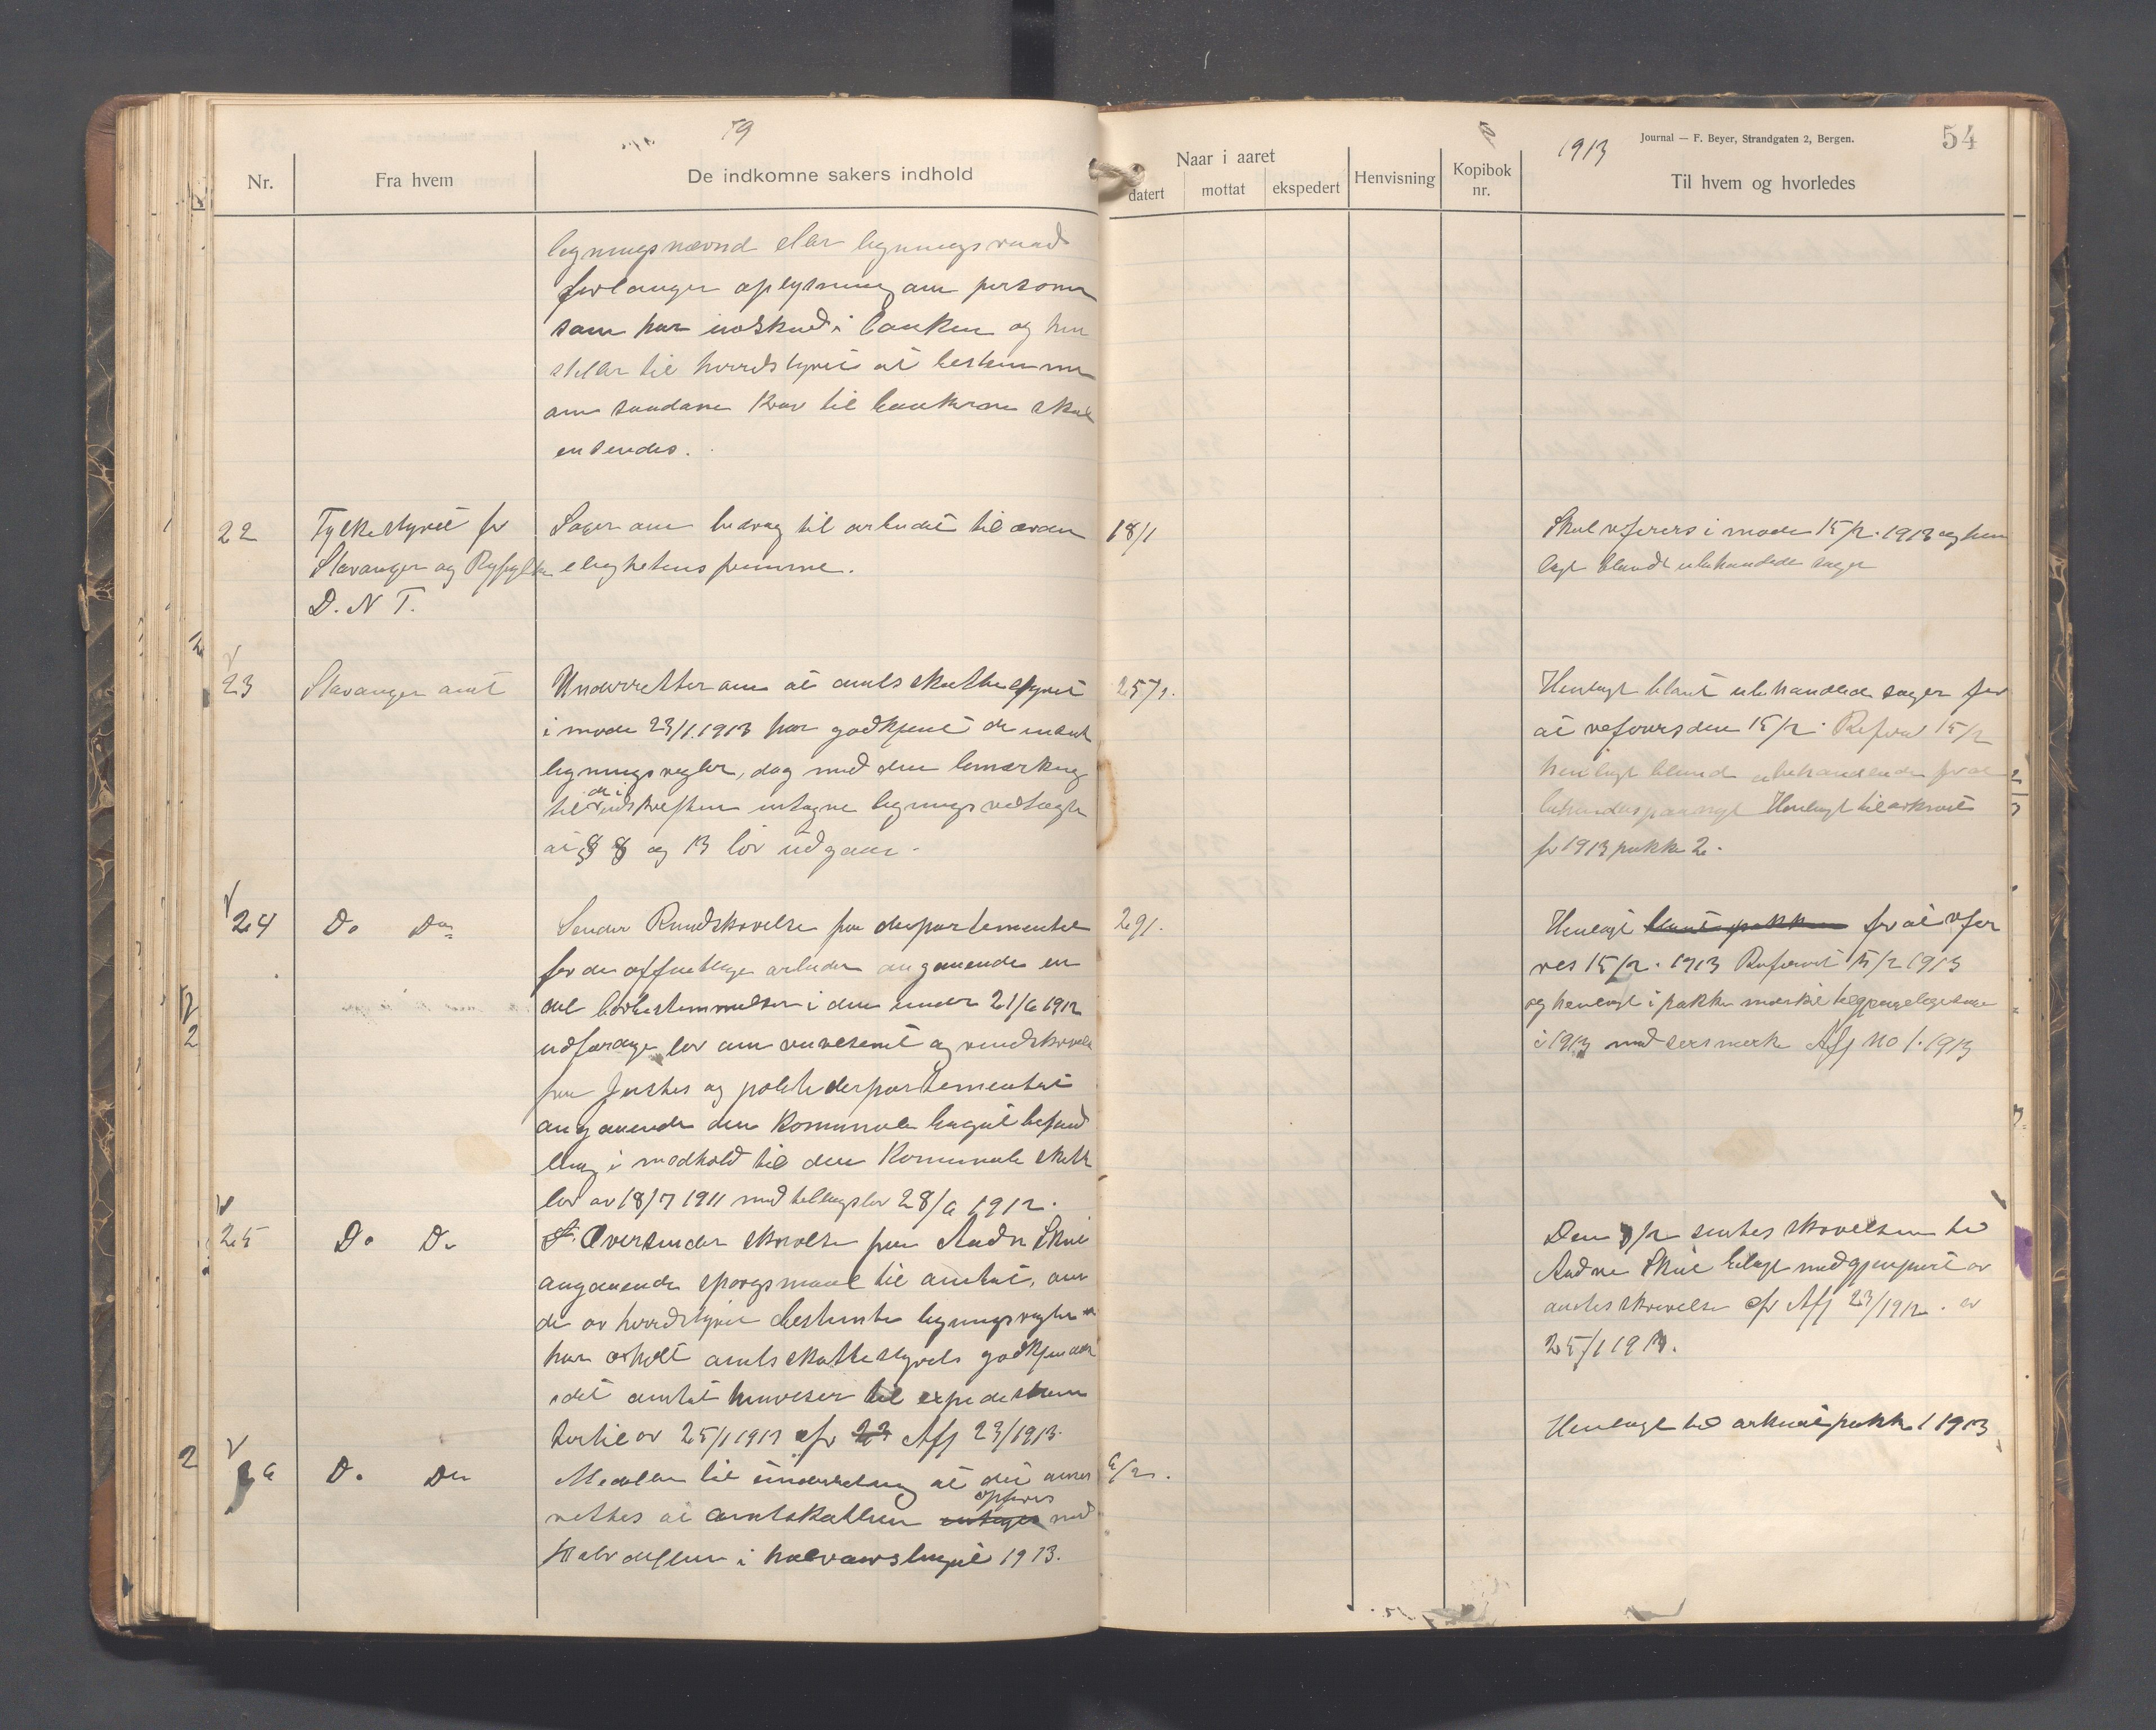 79
Nr.
Fra hvem
De indkomne sakers indhold
ligningsnævnd eller ligningsraad
forlanger oplysning om personer
som har indskud i banken og hen
stiller til herredstyret at bestemme
om saadane krav til bankerne skal
ensendes.
22
Fylkestyret for
Stavanger og Ryfylke
D. N T.
Sager om bidrag til arbeidet til ædru
elighetens fremme.
23
Stavanger amt
Underretter om at amtsskattestyret
i møde 23/1.1913 har godkjent de
ligningsregler, dog med den bemærkning
til de i utskriften intagne ligningsvedtægter
at § 8 og 13 bør udgaar.
24
Do Do
Sender Rundskrivelse fra departementet
for de offentlige arbeider angaaende en
del bestemmelser i den under 21/6 1912
udfærdige lov om veivesenet og rundskrivelse
fra Justis og politidepartementet
angaaende den Komunale
i medhold til den Komunale skatte
lov av 18/7 1911 med tillægslov 28/6 1912.
25
Do Do
Oversender skrivelse fra Audn Skeie
angaaende spørgsmaal til amtet, om
de av herredstyret bestemte ligningsregler
har erholt amtsskattestyrets godkjendelse
idet amtet henviser til
av 25/1 1913 cfr Afj 23/1913.
26
Do Do
Meddeler til underretning at det
rettes at amtskatten opføres med
Halvdelen i halvaarsbudget 1913.
1913
Journal — F. Beyer, Strandgaten 2, Bergen.
54
Naar i aaret
datert
mottat
ekspedert
Henvisning
Kopibok
nr.
Til hvem og hvorledes
18/1
Skal referers i møde 15/2. 1913 og hen
lagt blandt ubehandlede sager
25/1.
Henlagt blant ubehandlede sager for
at referers den 15/2. Referert 15/2
henlagt bland ubehandlede for at
behandles paanyt Henlagt til arkivet
for 1913 pakke 2.
29/1.
Henlagt blant pakken for at refer
res 15/2. 1913 Referert 15/2 1913
og henlagt i pakke merket
i 1913 med særmerke Afj No 1. 1913
Den 8/2 sentes skrivelsen til
Audne Skeie bilagt med gjenpart av
amtes skrivelse cfr Afj 23/1912. av
25/1 1913.
Henlagt til arkivet pakke 1 1913
6/2.